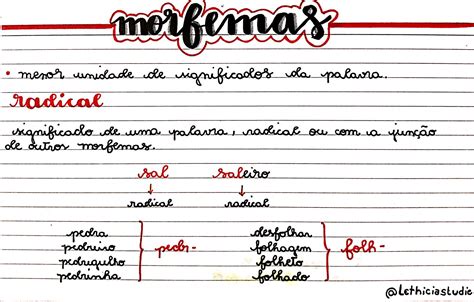 morfemas
• menor unidade de significados da palavra.
radical
significado de uma palavra, radical ou com a junção
de outros morfemas.
sal saleiro
↓ ↓
radical radical
pedra desfolhar
pedreiro pedr- folhagem folh-
pedregulho folheto
pedrinha folhado
@lethiciastudie